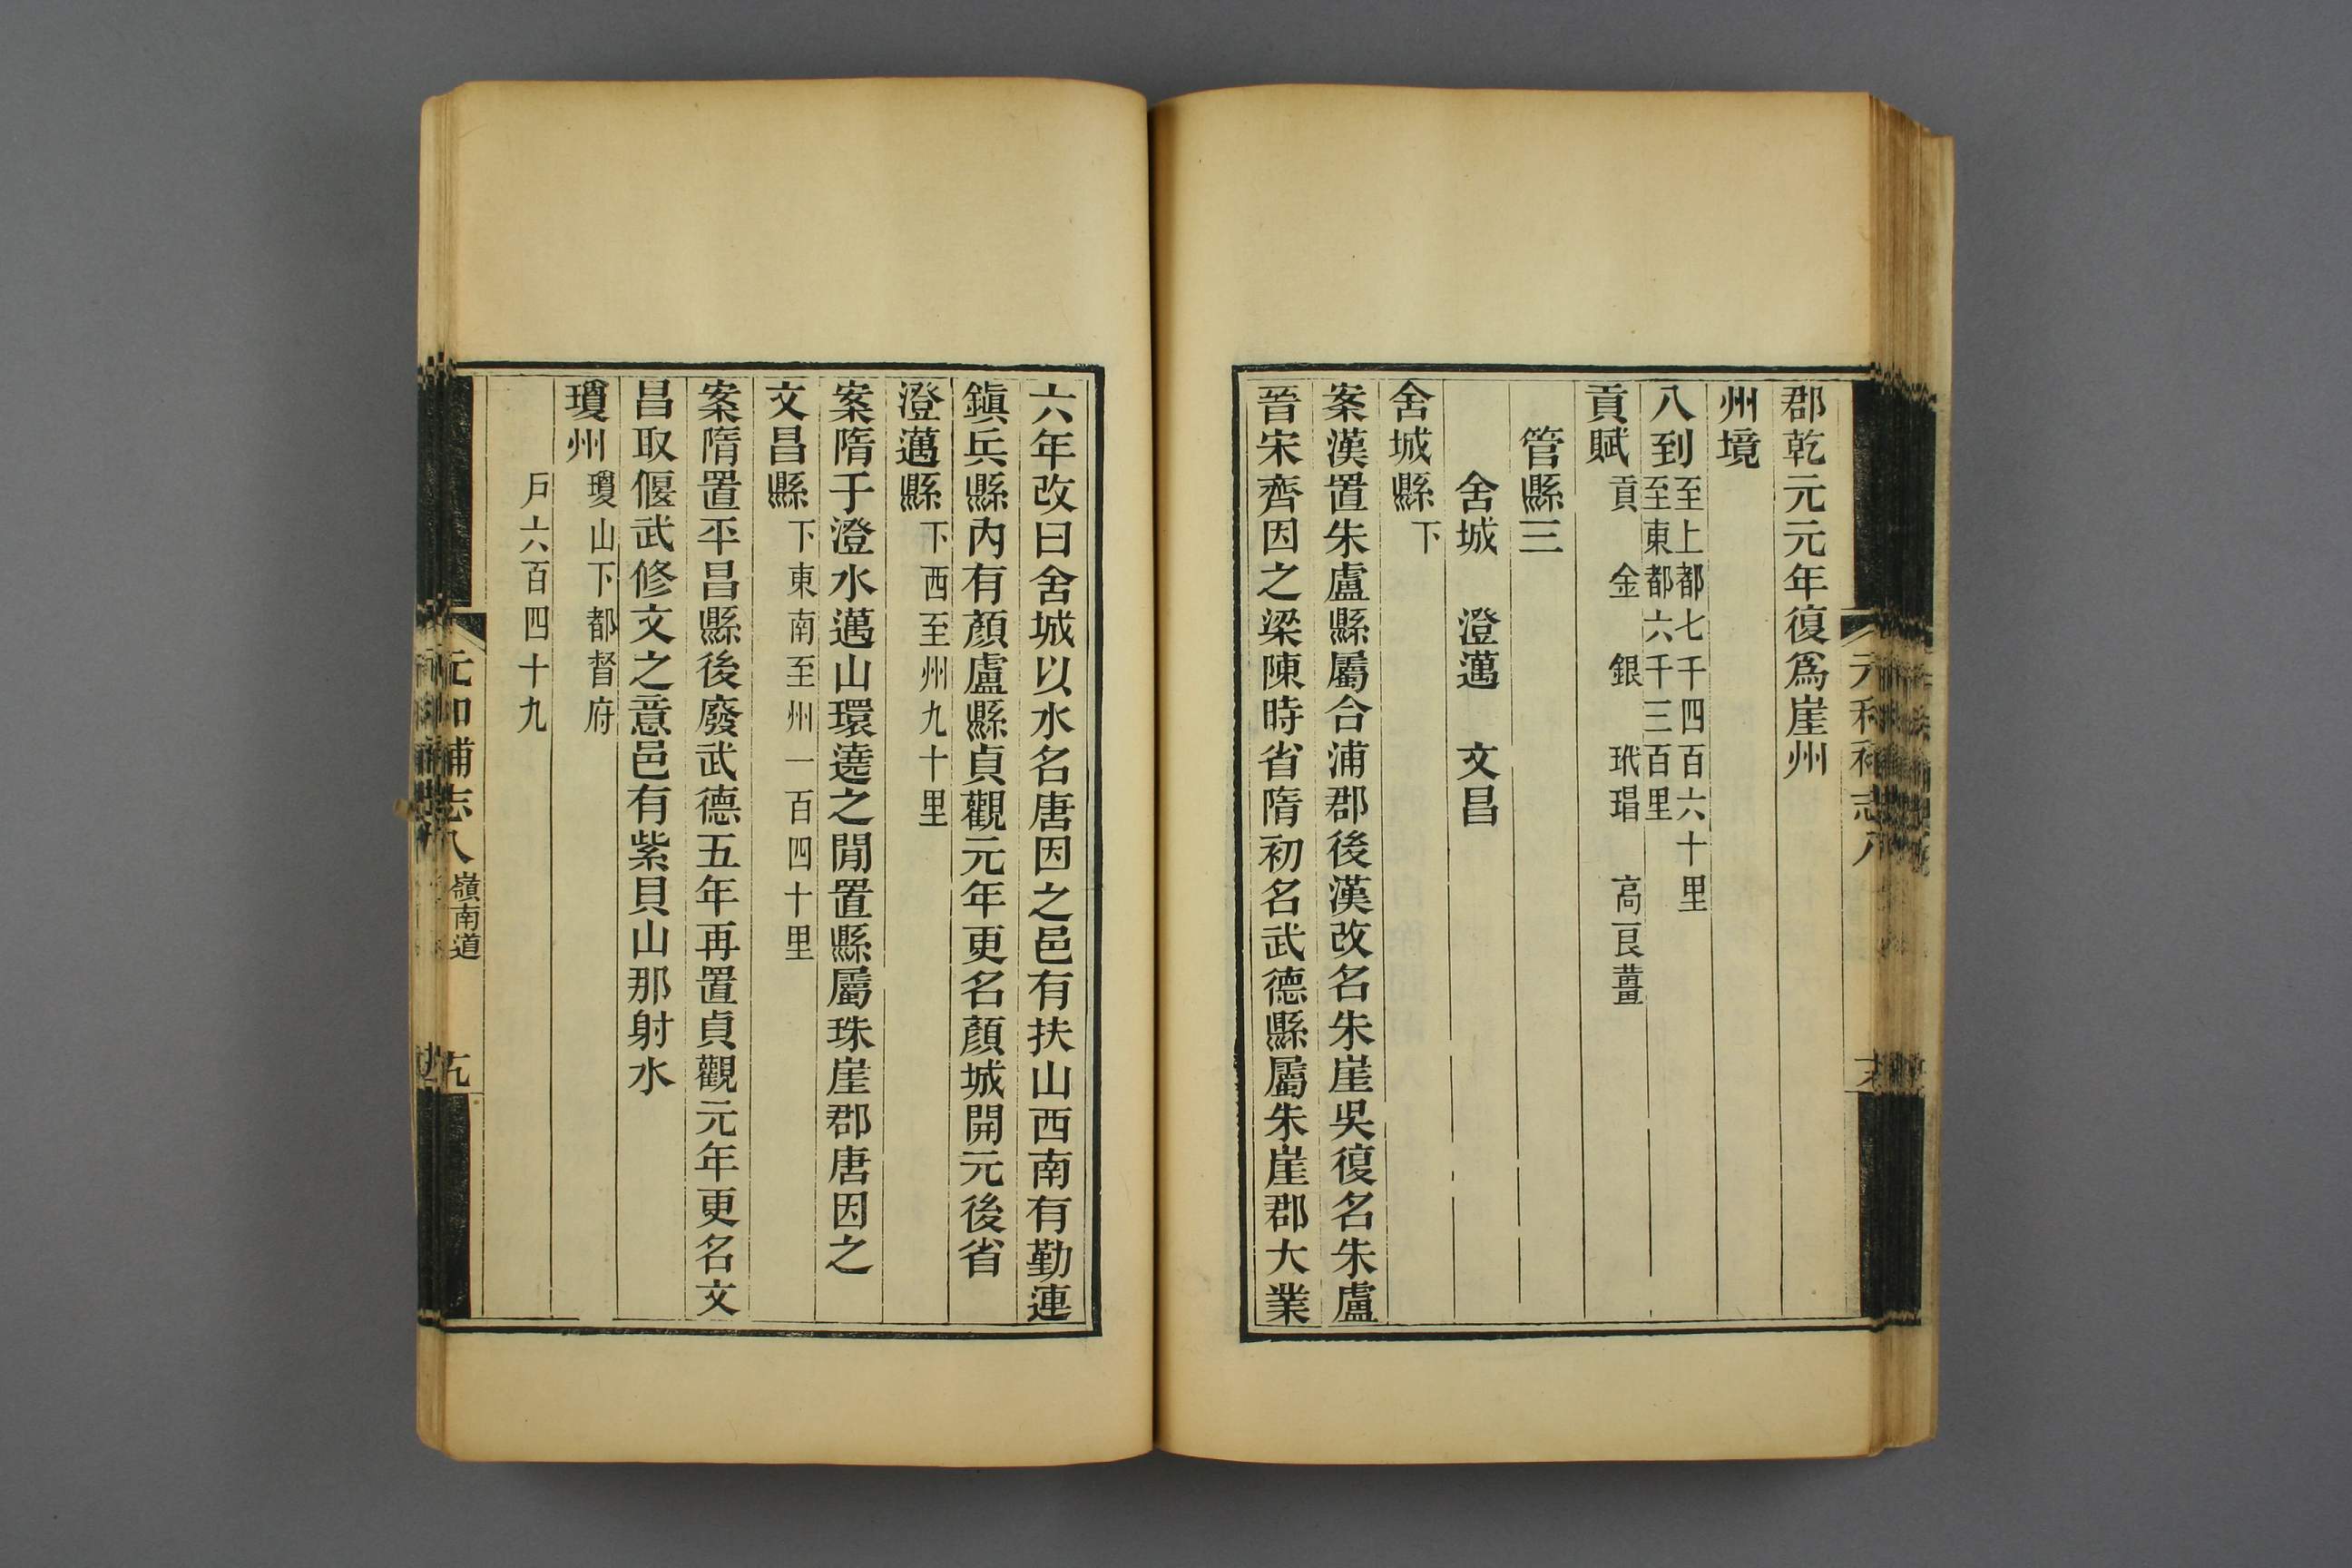 郡乾元元年復爲崖州
州境
八到至上都七千四百六十里
至東都六千三百里
貢賦貢 金 銀 玳瑁 高良薑
管縣三
舍城 澄邁 文昌
舍城縣下
案漢置朱盧縣屬合浦郡後漢改名朱崖吳復名朱盧
晉宋齊因之梁陳時省隋初名武德縣屬朱崖郡大業
六年改曰舍城以水名唐因之邑有扶山西南有勤連
鎮兵縣內有顏盧縣貞觀元年更名顏城開元後省
澄邁縣下西至州九十里
案隋于澄水邁山環遶之閒置縣屬珠崖郡唐因之
文昌縣下東南至州一百四十里
案隋置平昌縣後廢武德五年再置貞觀元年更名文
昌取偃武修文之意邑有紫貝山那射水
瓊州瓊山下都督府
戶六百四十九
元和補志八 嶺南道